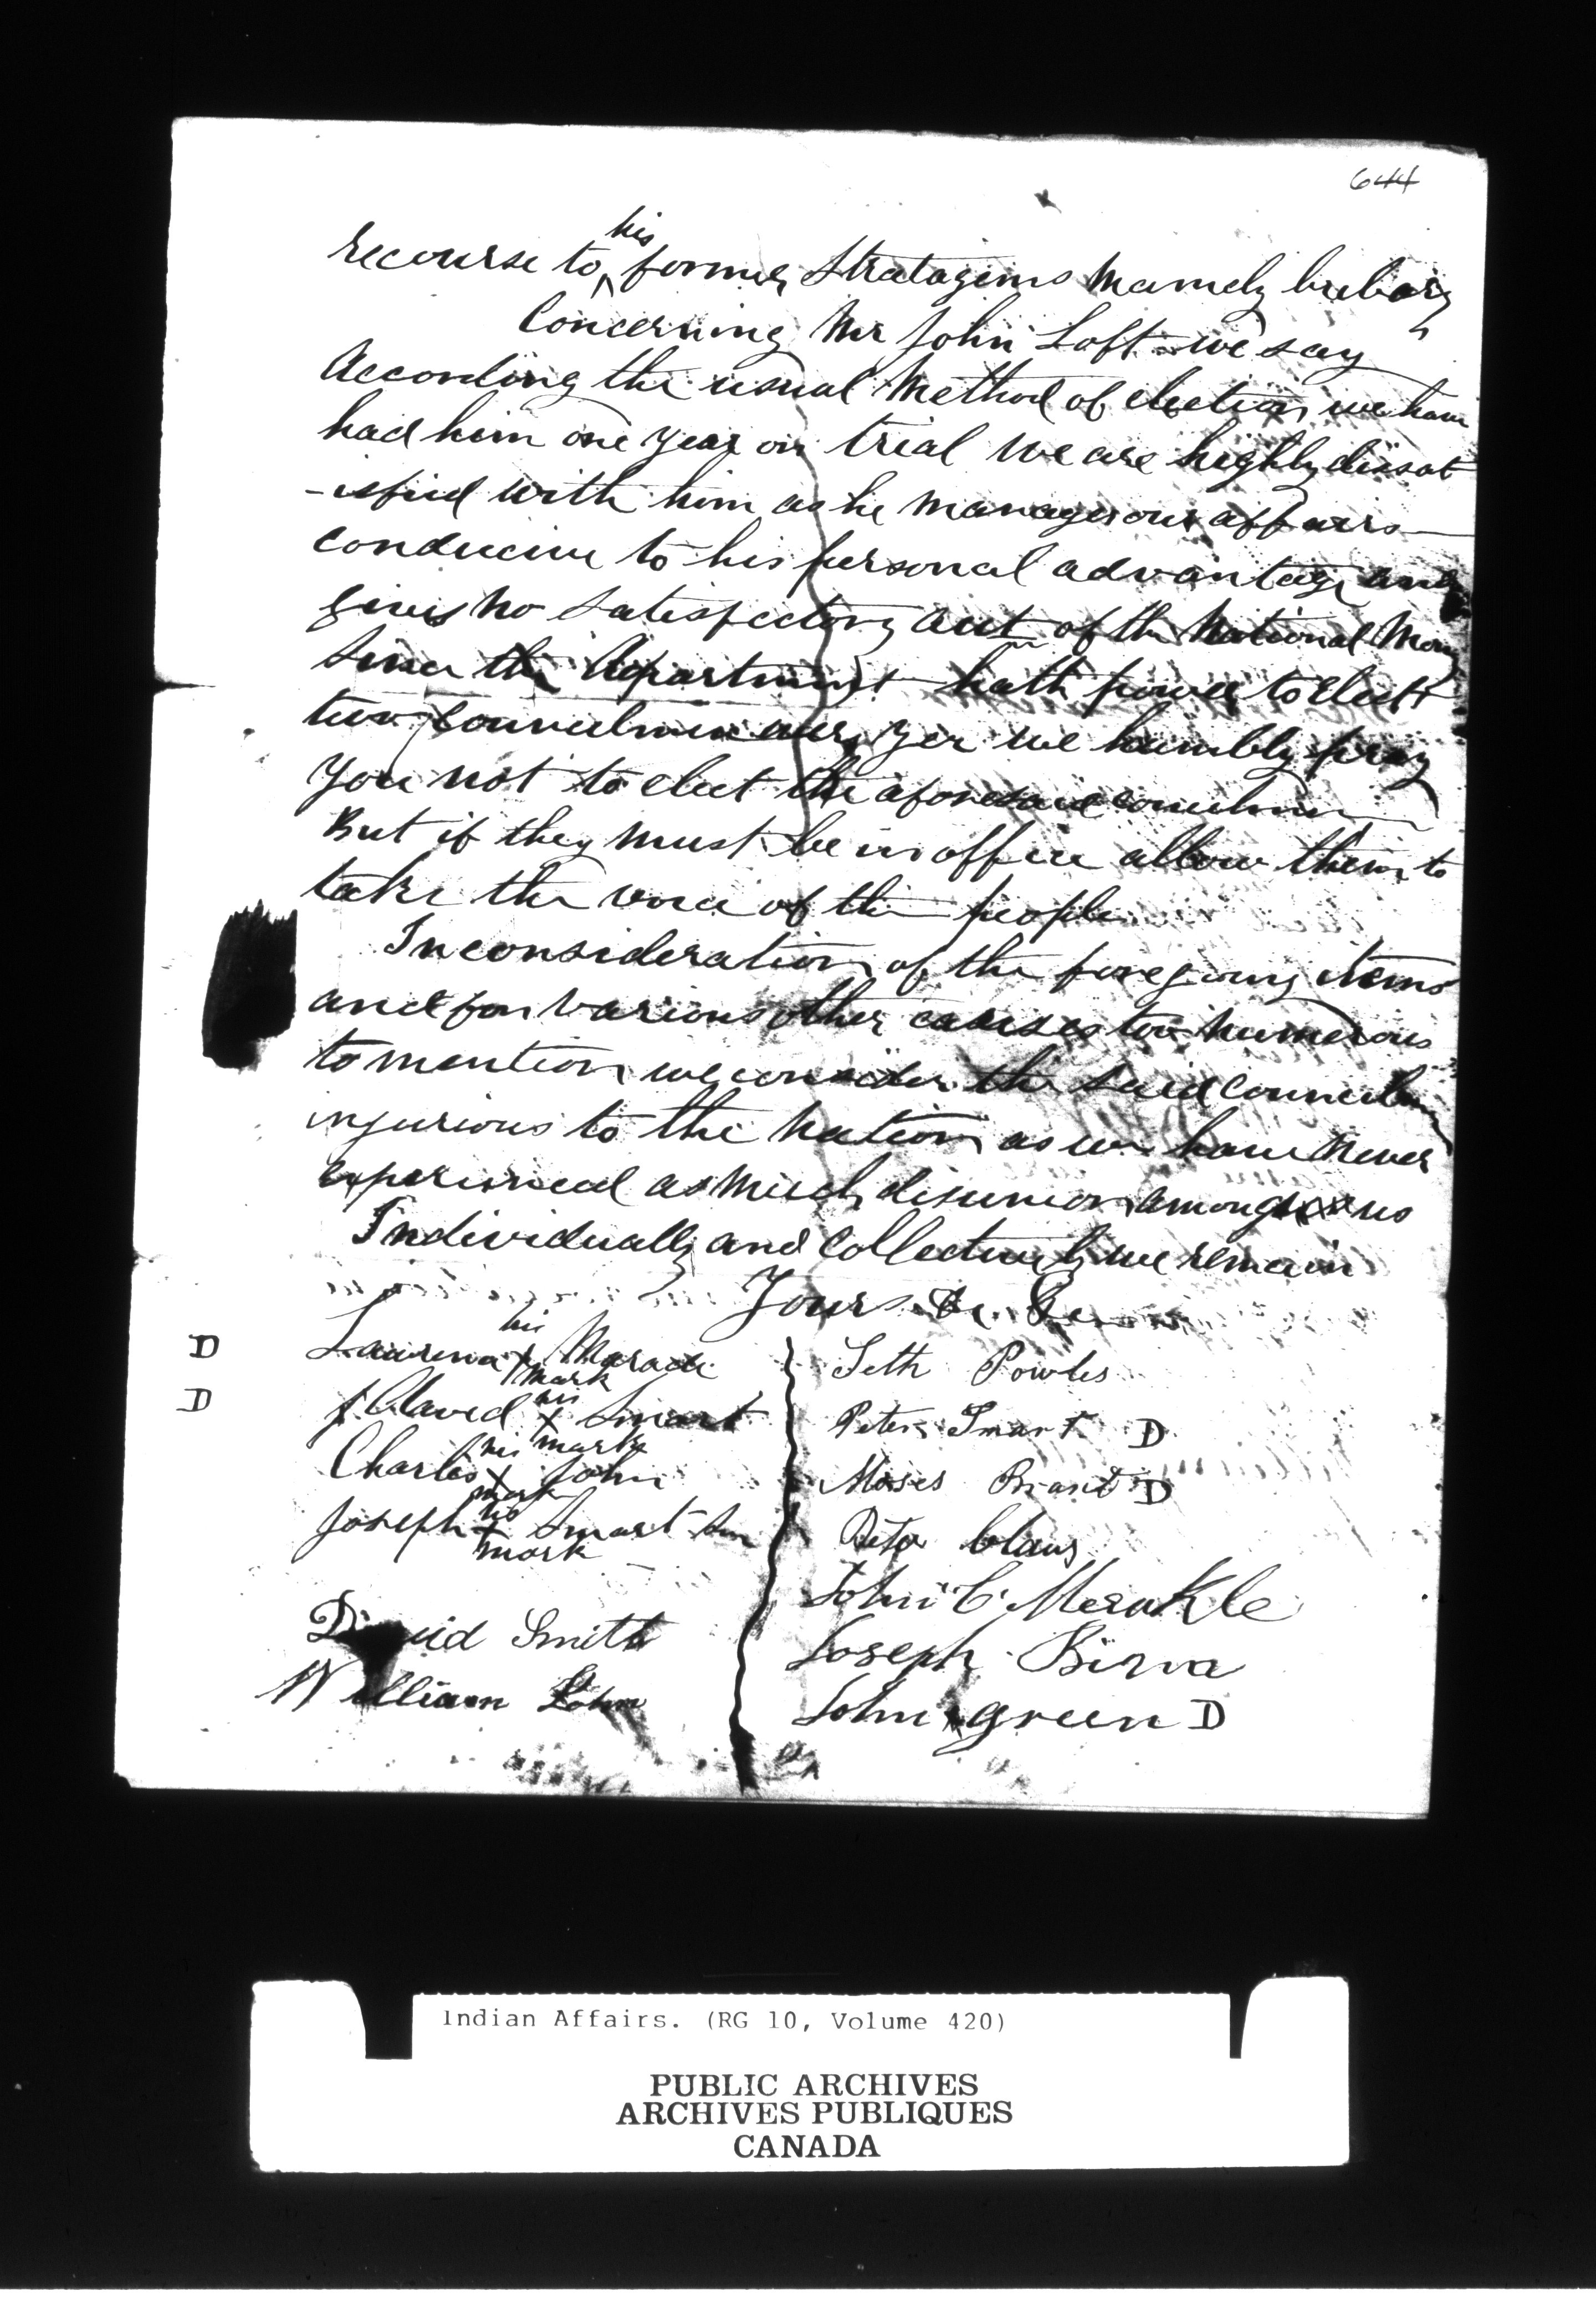 644
his
recourse to ^ former Stratagems Namely bribery
Concerning Mr John Loft we say
According the usual Method of election we have
had him one year on trial we are highly dissat
-isfied with him as he manages our affairs
conducive to his personal advantage and
gives no satisfactory acct of the National Mony
Since the Department hath power to Elect
two councilmen we humbly pray
You not to elect the aforesaid councilmen
But if they must be in office allow them to
take the voice of the people
In consideration of the foregoing items
and for various other causes too numerous
to mention we consider the said Councilmen
injurious to the Nation as we have Never
experienced as much disunion amongst us
Individually and Collectively we remain
Yours &c &c
D his mark x Seth Powles
D his mark x Smart Peter Smart D
Charles his mark x John Moses Brant D
Joseph his mark x Smart Sen Peter Claus
John C. Merakle
David Smith Joseph Birva
William John John green D
Indian Affairs. (RG 10, Volume 420)
PUBLIC ARCHIVES
ARCHIVES PUBLIQUES
CANADA